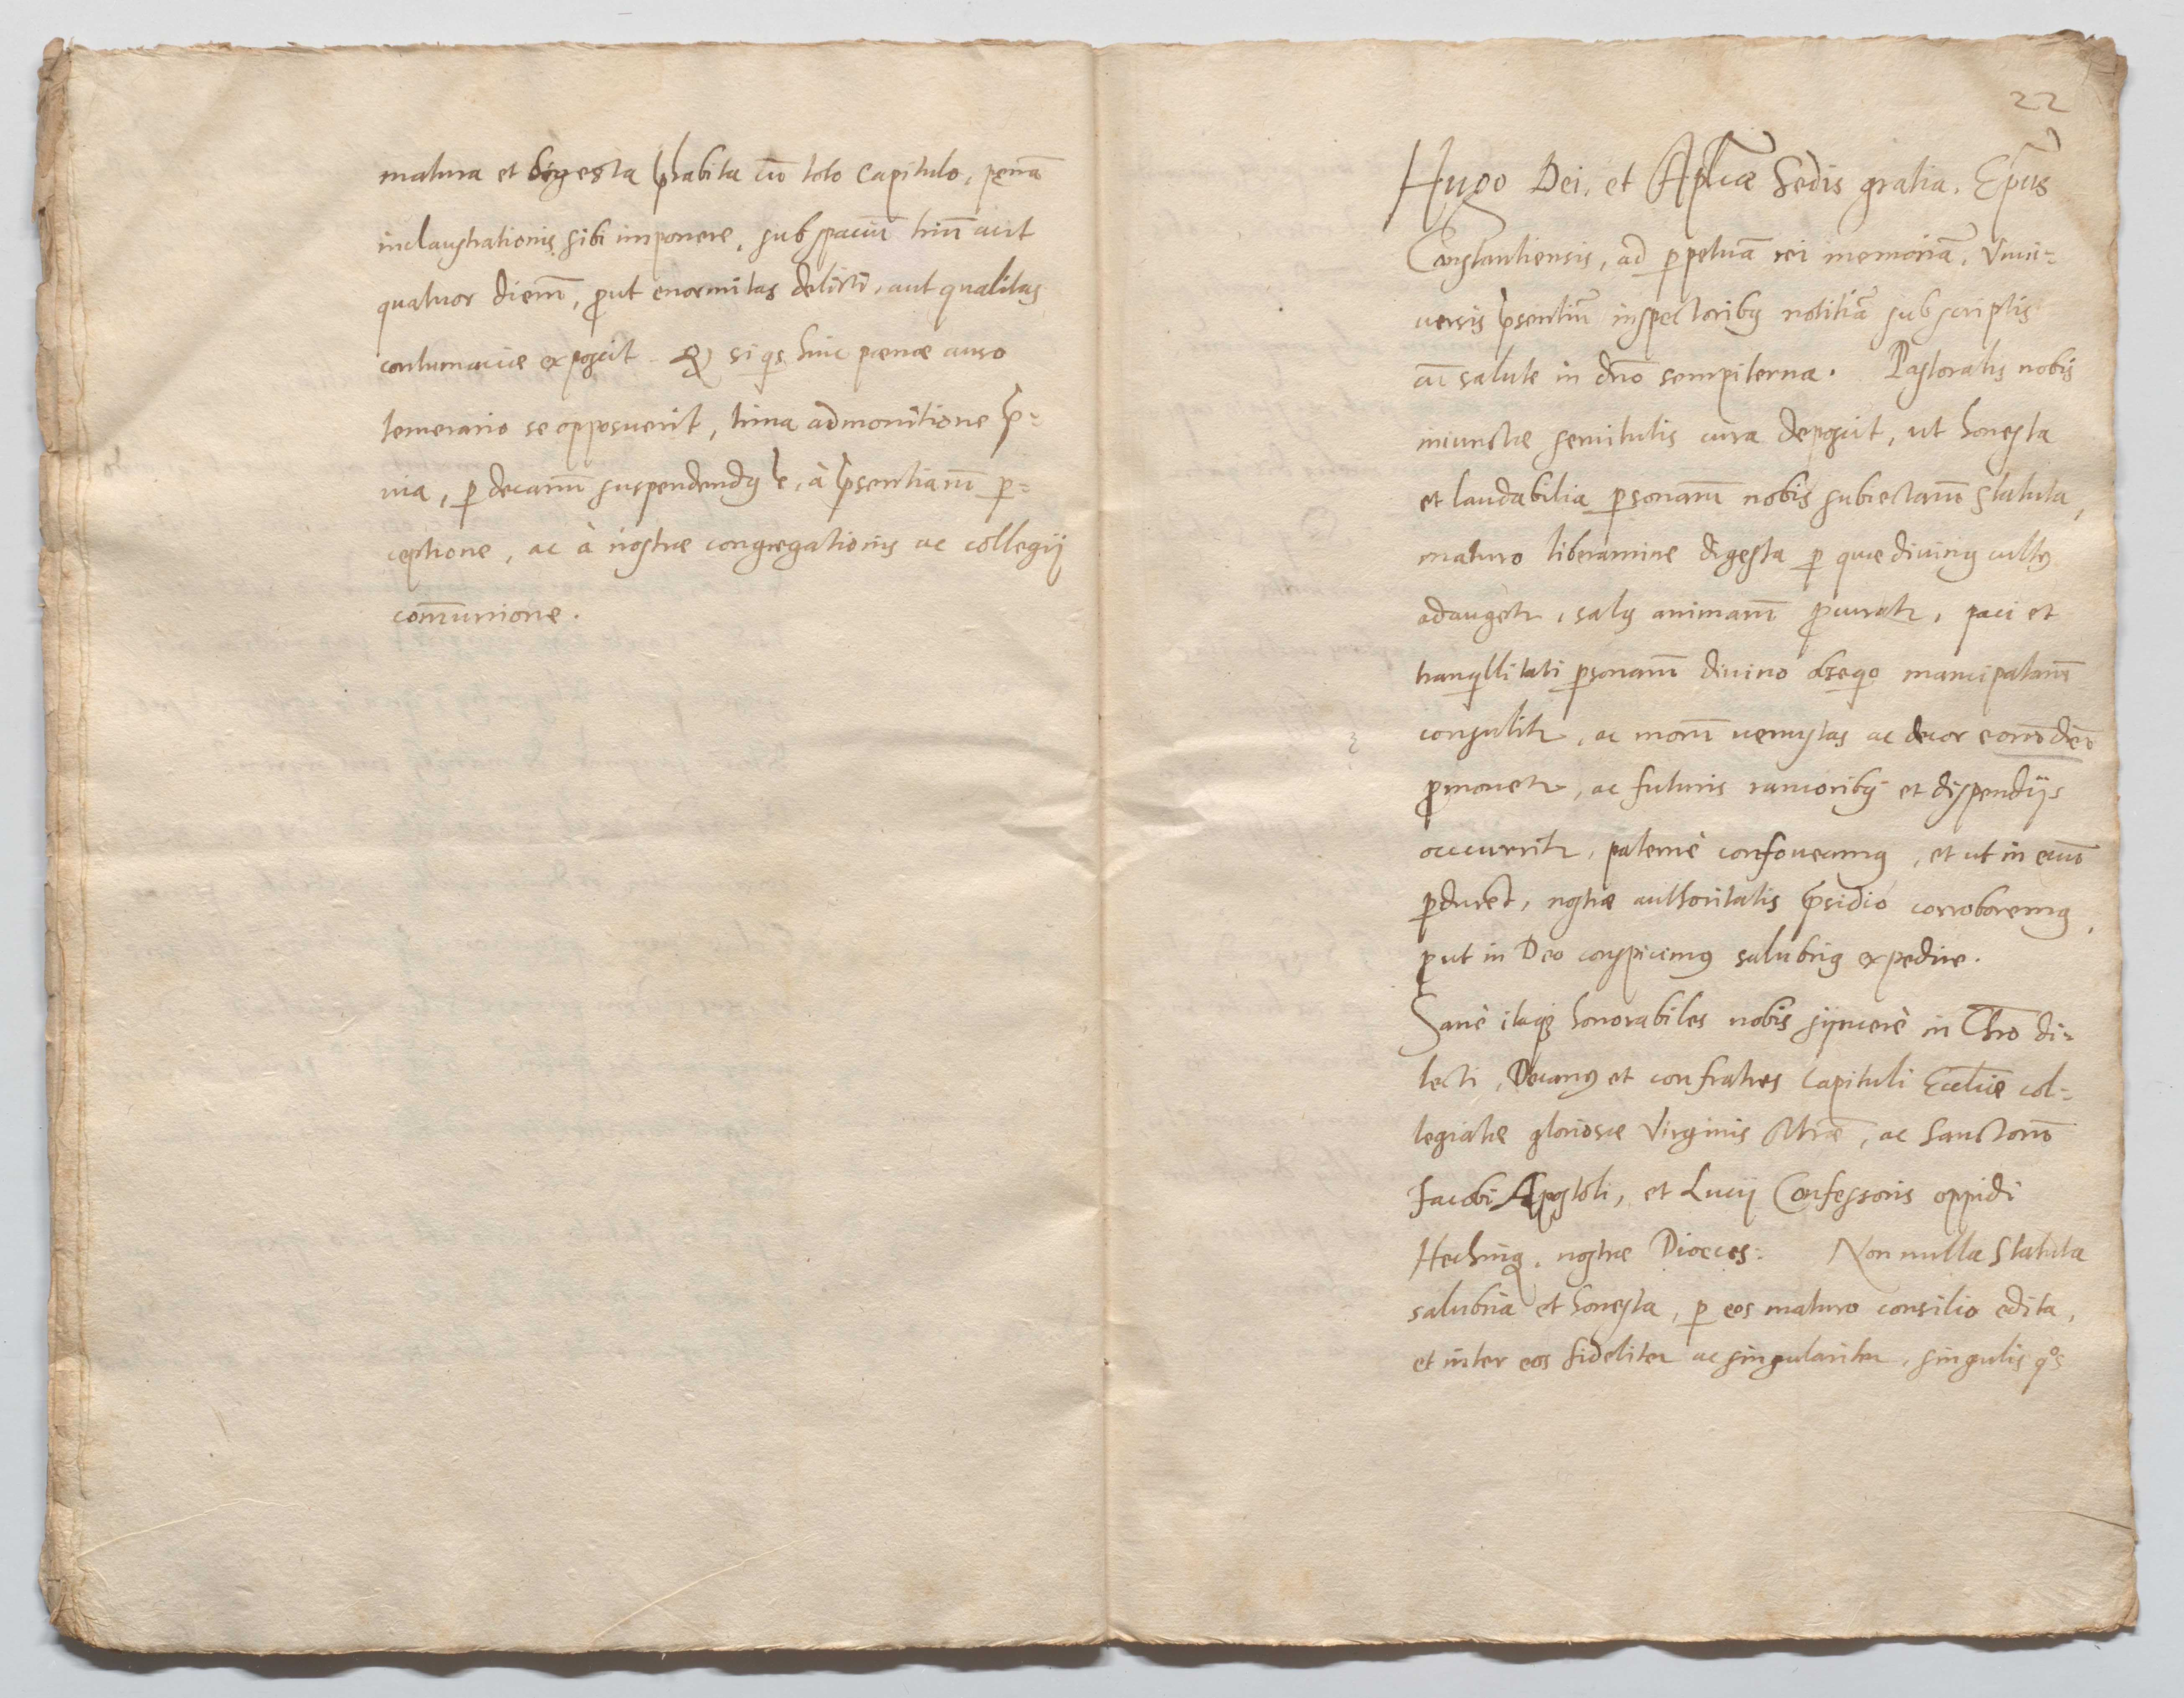 matura et digesta p̃habita cũ toto Capitulo, pęnã
inclaustrationis sibi imponere, sub spaciũ triũ aut
quatuor dierũ, p̃ut enormitas delicti, aut qualitas
contumaciæ exposcit. Q̃ si q̃s huic pœnæ auso
temerario se opposuerit, trina admonitione p̃-
via, p̱ decanũ suspendendꝰ ẽ, à p̃sentiarũ p̱-
ceptione, ac à nostræ congregationis ac collegij
com̃unione.
22
Hugo Dei, et Ap̃licæ Sedis gratia, Ep̃us
Constantiensis, ad p̱petuã rei memoriã, Vniu-
uersis p̃sentiũ inspectoribꝰ notitiã subscriptis
cũ salute in dño sempiterna. Pastoralis nobis
iniunctæ seruitutis cura deposcit, ut honesta
et laudabilia p̱sonarũ nobis subiectarũ Statuta,
maturo liberamine digesta p̱ quæ diuinꝰ cultꝰ
adaugetr, salꝰ animarũ p̃curatr, paci et
tranq̃llitati p̱sonarũ diuino obseq̃o mancipatarũ
consulitr, ac morũ uenustas ac decor eorũdẽ
p̃mouetr, ac futuris rancoribꝰ et dispendijs
occurritr, paternè confoueamꝰ, et ut in æuũ
p̱durẽt, nostræ authoritatis p̃sidio corroboremꝰ,
p̃ut in Deo conspicimꝰ salubriꝰ expedire.
Sanè itaq̃ honorabiles nobis syncerè in Chr̃o di-
lecti, Decanꝰ et confratres Capituli Eccl̃iæ col-
legiatæ gloriosæ Virginis M̃riæ, ac Sanctorũ
Jacobi Apostoli, et Lucij Confessoris oppidi
Heching̃, nostræ Dioeces: Non nulla Statuta
salubria et honesta, p̱ eos maturo consilio edita,
et inter eos fideliter ac singulariter, singulis q̊s